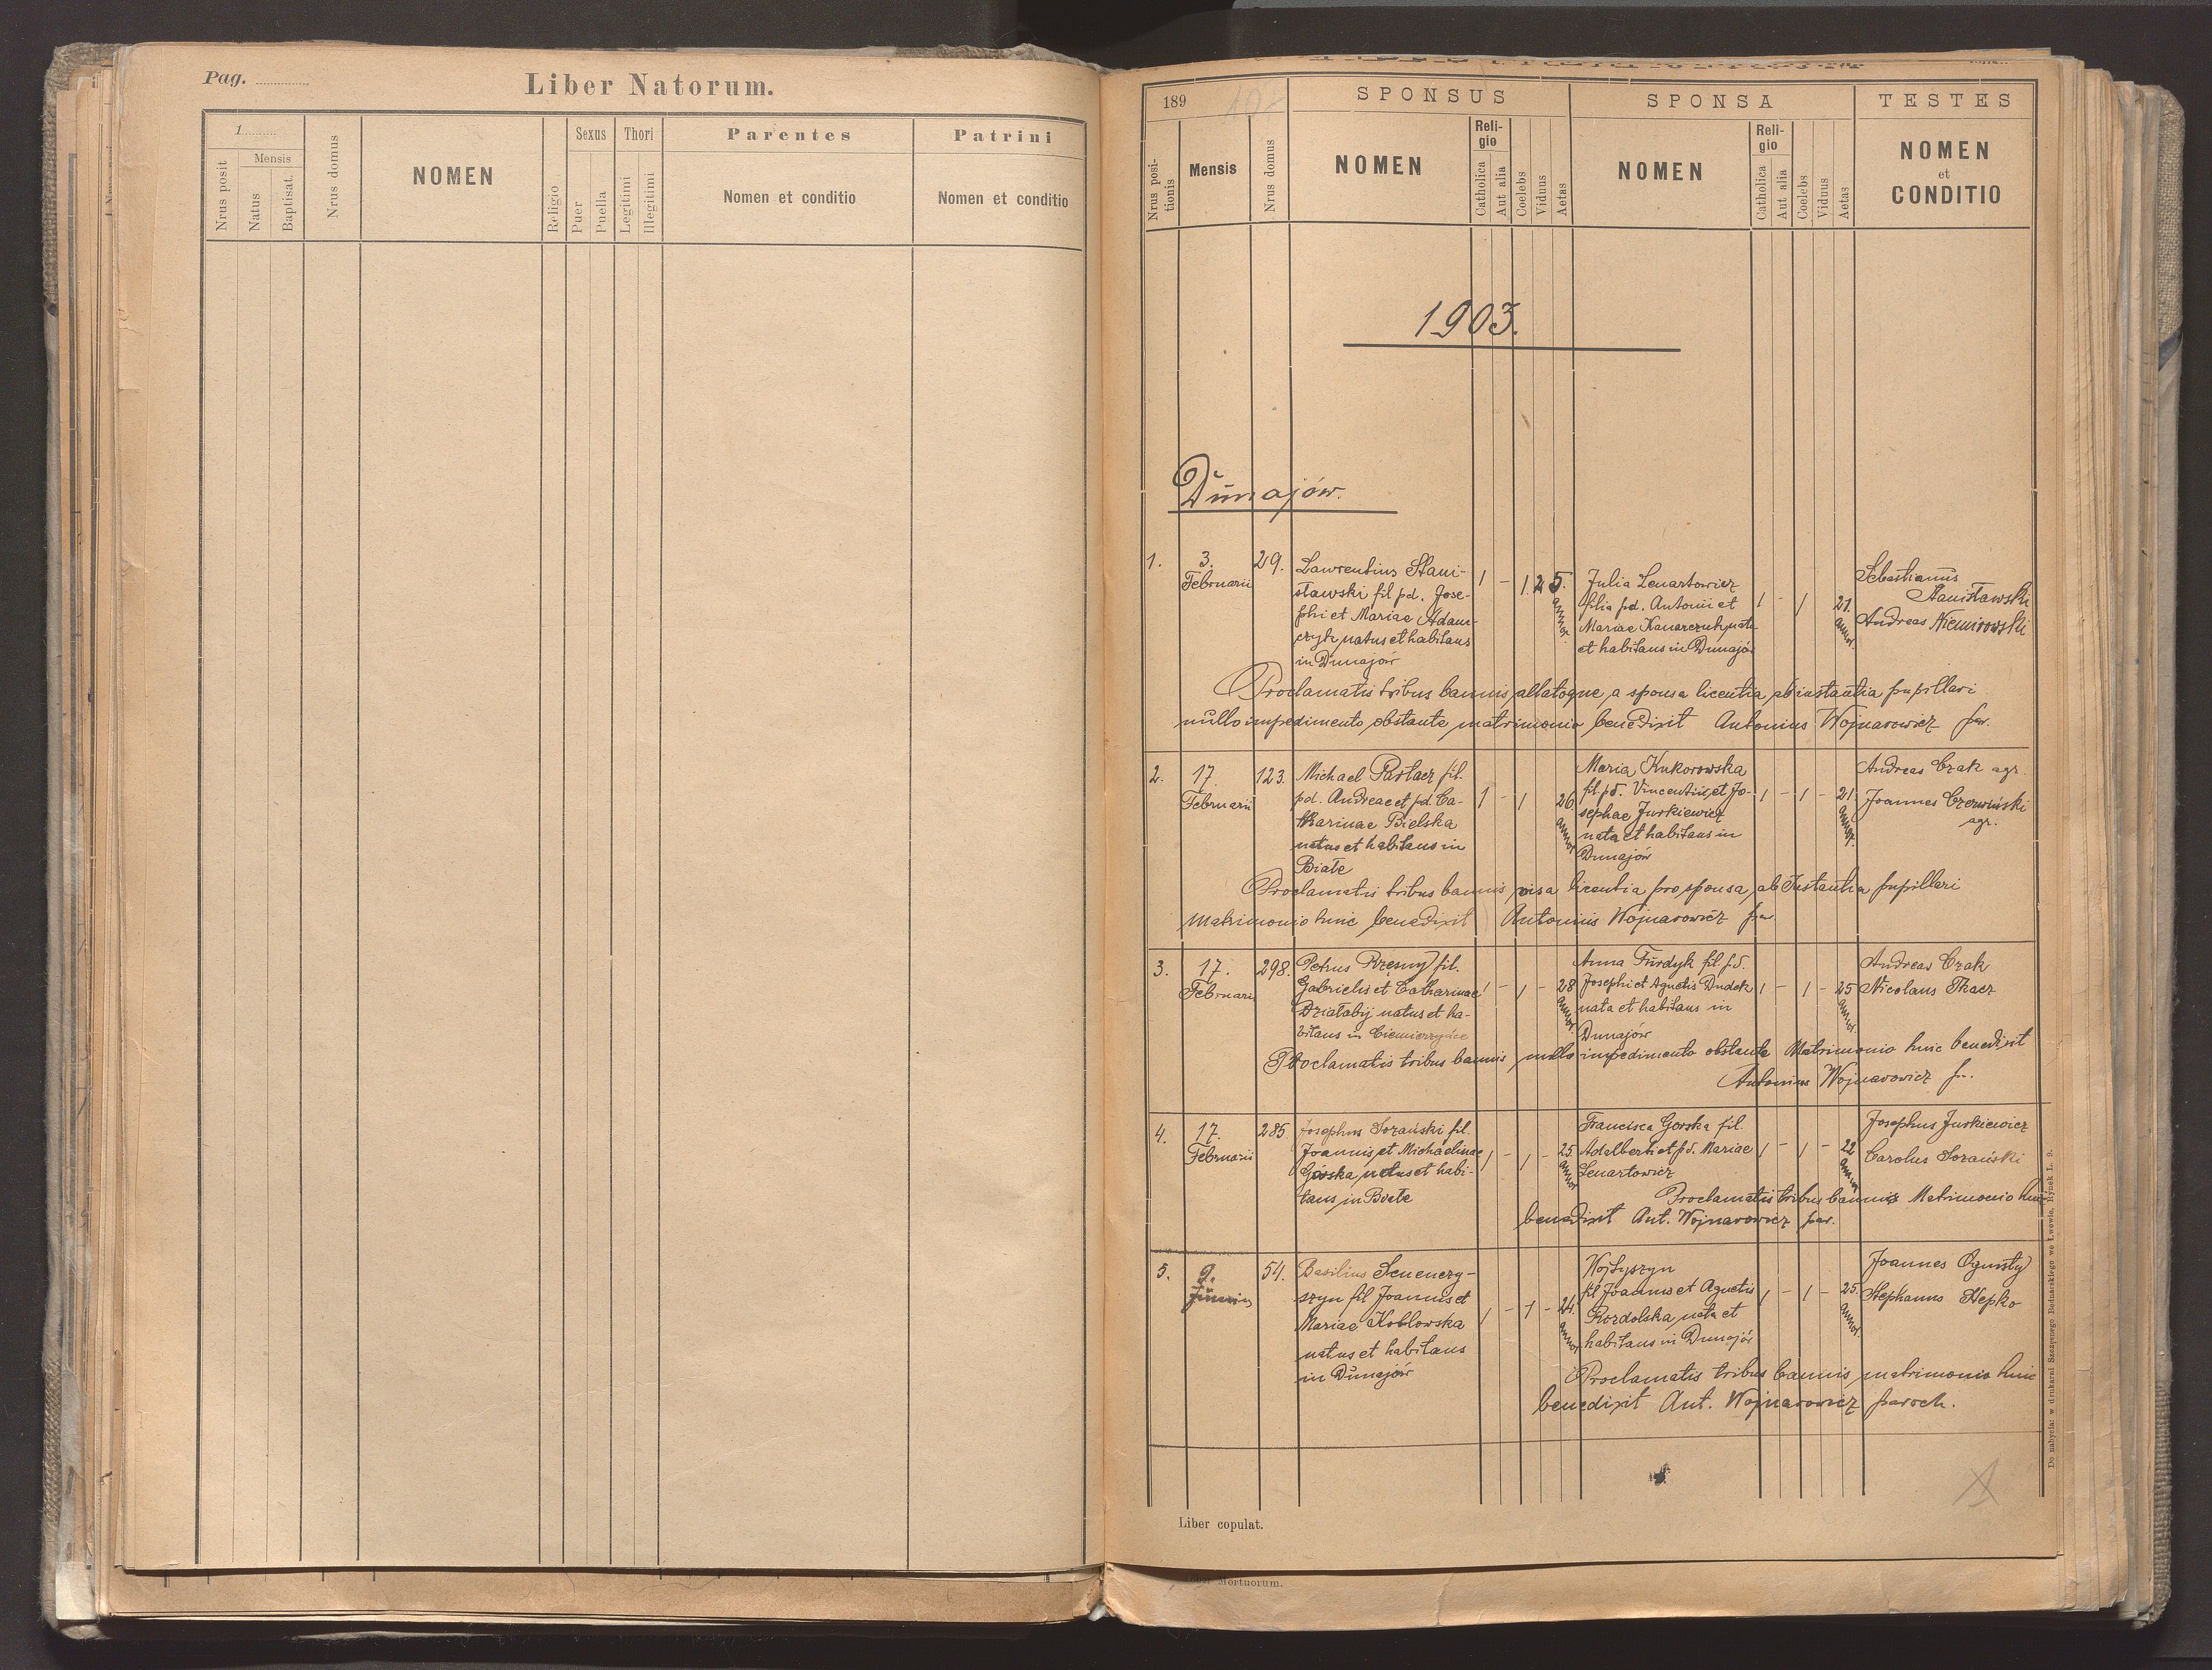 Pag.
Liber Natorum.
1
Nrus posit
Mensis
Natus
Baptisat.
Nrus domus
NOMEN
Religio
Sexus
Puer
Puella
Thori
Legitimi
Illegitimi
Parentes
Nomen et conditio
Patrini
Nomen et conditio
189
SPONSUS
SPONSA
TESTES
Nrus posi-
tionis
Mensis
Nrus domus
NOMEN
Reli-
gio
Catholica
Aut alia
Coelebs
Viduus
Aetas
NOMEN
Reli-
gio
Catholica
Aut alia
Coelebs
Viduus
Aetas
NOMEN
et
CONDITIO
1903.
Dunajów.
1.
3.
Februarii
29.
Laurentius Stani-
sławski fil pd. Jose-
phi et Mariae Adam-
czyk natus et habitans
in Dunajów
1 - 1 25. annor.
Julia Lenartowicz
filia pd. Antonii et
Mariae Kanarczuk nata
et habitans in Dunajów
1 - 1 21. annor.
Sebastianus
Stanisławski
Andreas Niemirowski
Proclamatis tribus bannis, allatoque a sponsa licentia ab instantia pupillari
nullo impedimento obstante matrimonio benedixit Antonius Wojnarowicz par.
2.
17
Februarii
123.
Michael Pastacz fil.
pd. Andreae et pd. Ca-
tharinae Bielska
natus et habitans in
Białe
1 - 1 26 annor
Maria Kukorowska
fil. pd. Vincentii, et Jo-
sephae Jurkiewicz
nata et habitans in
Dunajów
1 - 1 - 21. annor.
Andreas Czak agr.
Joannes Czerwiński
agr.
Proclamatis tribus bannis visa licentia pro sponsa, ab Instantia pupillari
Matrimonio huic benedixit Antonius Wojnarowicz par.
3.
17.
Februarii
298.
Petrus Rzęsny fil.
Gabrielis et Catharinae
Działabij natus et ha-
bitans in Ciemierzyńce
1 - 1 - 28 annor.
Anna Furdyk fil. pd.
Josephi et Agnetis Dudek
nata et habitans in
Dunajów
1 - 1 - 25 annor.
Andreas Czak
Nicolaus Tkacz
Proclamatis tribus bannis, nullo impedimento obstante Matrimonio huic benedixit
Antonius Wojnarowicz
4.
17.
Februarii
285
Josephus Sozański fil.
Joannis et Michaelinae
Górska natus et habi-
tans in Białe
1 - 1 - 25 annor
Francisca Górska fil.
Adalberti et pd. Mariae
Lenartowicz
1 - 1 - 22 annor
Josephus Jurkiewicz
Carolus Sozański
Proclamatis tribus bannis Matrimonio huic
benedixit Ant. Wojnarowicz par.
5.
9.
Junii
54.
Basilius Semenczy-
szyn fil Joannis et
Mariae Kobłowska
natus et habitans
in Dunajów
1 - 1 - 24. annor
Wojtyszyn
fil Joannis et Agnetis
Rozdolska nata et
habitans in Dunajów
1 - 1 - 25. annor.
Joannes Ognisty
Stephanus Stepko
Proclamatis tribus bannis matrimonio huic
benedixit Ant. Wojnarowicz paroch.
Liber copulat.
Do nabycia: w drukarni Szczęsnego Bednarskiego we Lwowie, Rynek L. 9.
Mortuorum.